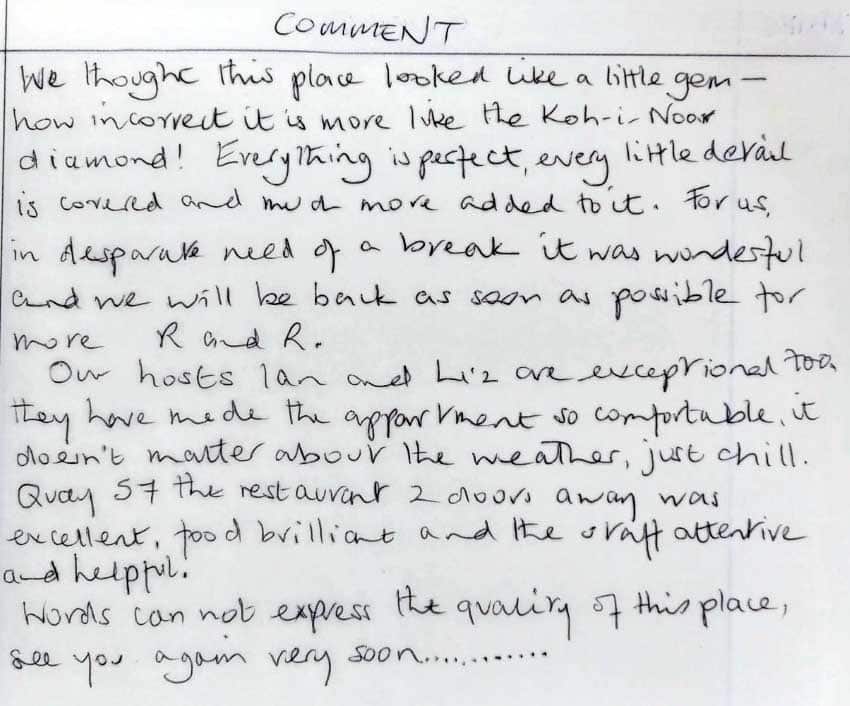 COMMENT
We thought this place looked like a little gem –
how incorrect it is more like the Koh-i-Noor
diamond! Everything is perfect, every little detail
is covered and much more added to it. For us,
in desparate need of a break it was wonderful
and we will be back as soon as possible for
more R and R.
Our hosts Ian and Liz are exceptional too,
they have made the appartment so comfortable, it
doesn't matter about the weather, just chill.
Quay 57 the restaurant 2 doors away was
excellent, food brilliant and the staff attentive
and helpful.
Words can not express the quality of this place,
see you again very soon............